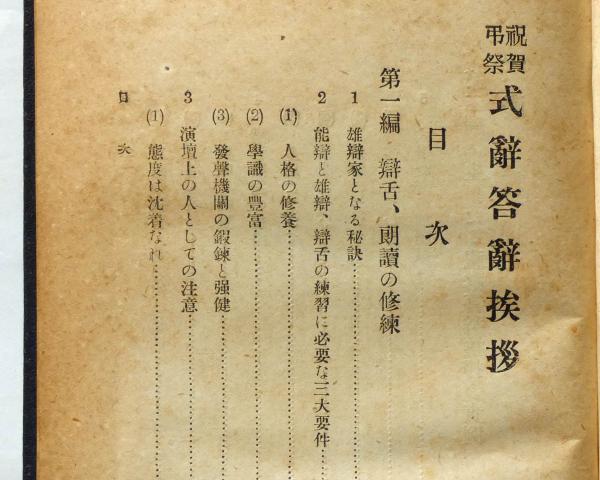 祝賀弔祭 式辭答辭挨拶
目次
第一編 辯舌、朗讀の修練
1 雄辯家となる秘訣
2 能辯と雄辯、辯舌の練習に必要な三大要件
(1) 人格の修養
(2) 學識の豐富
(3) 發聲機關の鍜鍊と强健
3 演壇上の人としての注意
(1) 態度は沈着なれ
目次